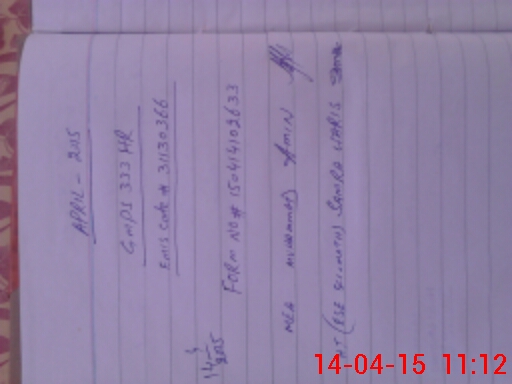 APRIL - 2015
GMPS 333 HR
Emis Code # 31130366
14/4/2015
FORM NO# 150414102633
MEA MUHAMMAD AMIN
HT (ESE SCI.MATH) SAMRA WARIS
14-04-15 11:12